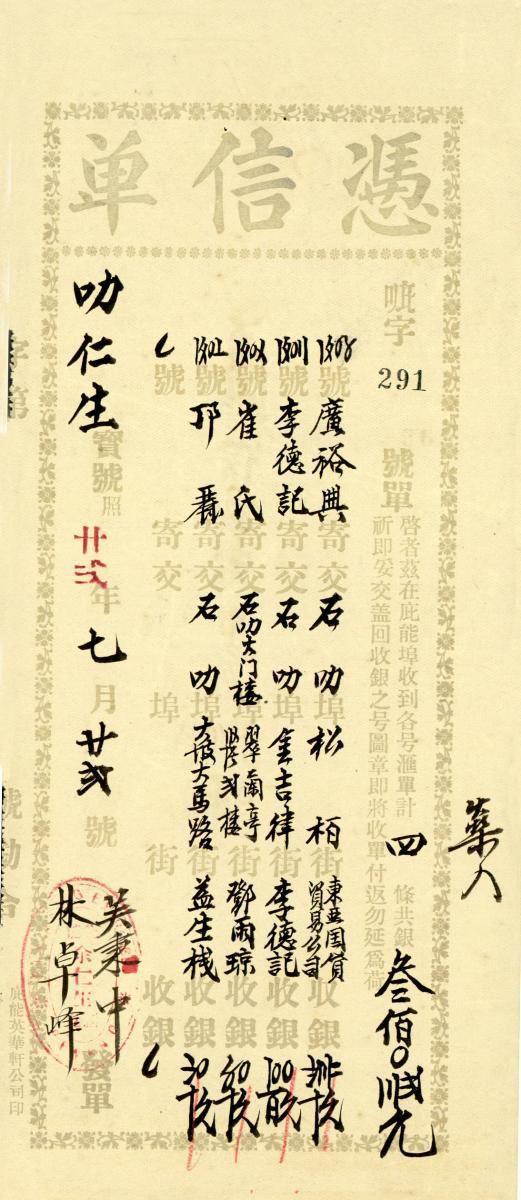 憑信单
字
291
號單
啓者茲在庇能埠收到各号滙單計 四 條共銀 叁佰
祈即妥交盖回收銀之号圖章即將收單付返勿延爲荷
號 廣裕興 寄交 石叻埠 松柏街 東亞国貨貿易公司 收銀
號 李德記 寄交 石叻埠 金吉律街 李德記 收銀
號 崔氏 寄交 石叻大门楼埠 翠蘭亭街 鄧雨琼 收銀
號 邝 寄交 石叻埠 大坡大馬路街 益生栈 收銀
號 寄交 埠 街 收銀
叻仁生 寶號照 廿弍年 七月 廿弍號 發單
吴秉中
林卓峰
字第
庇能英華軒公司印